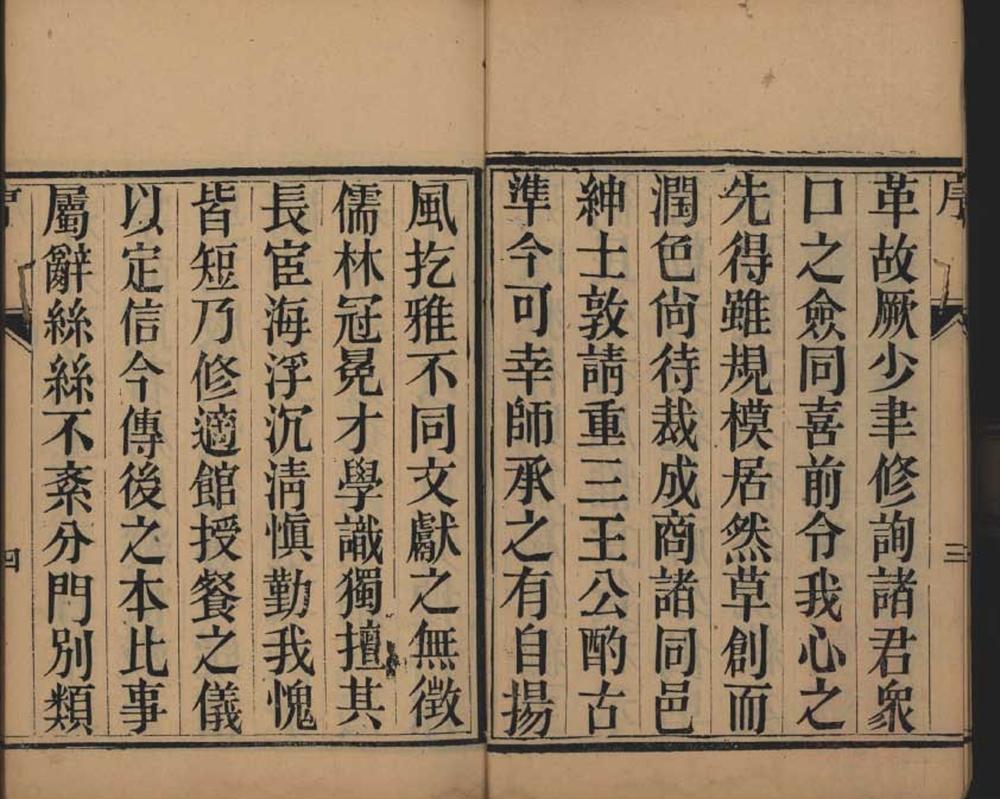 序
三
革故厥少聿修詢諸君衆
口之僉同喜前令我心之
先得雖規模居然草創而
潤色尙待裁成商諸同邑
紳士敦請重三王公酌古
準今可幸師承之有自揚
風扢雅不同文獻之無徴
儒林冠冕才學識獨擅其
長宦海浮沉淸愼勤我愧
皆短乃修適館授餐之儀
以定信今傳後之本比事
屬辭絲絲不紊分門別類
四